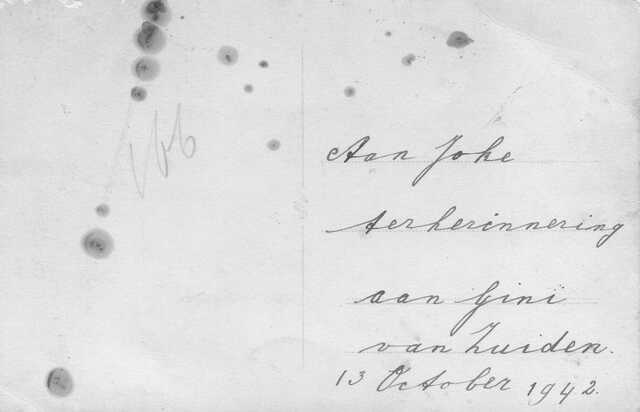 166
Aan Joke
terherinnering
aan Gini
van Zuiden.
13 October 1942.